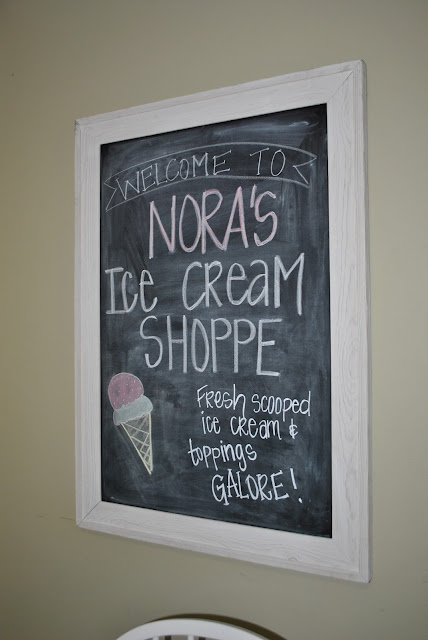 WELCOME TO
NORA'S
ICE CREAM
SHOPPE
Fresh scooped
ice cream &
toppings
GALORE!